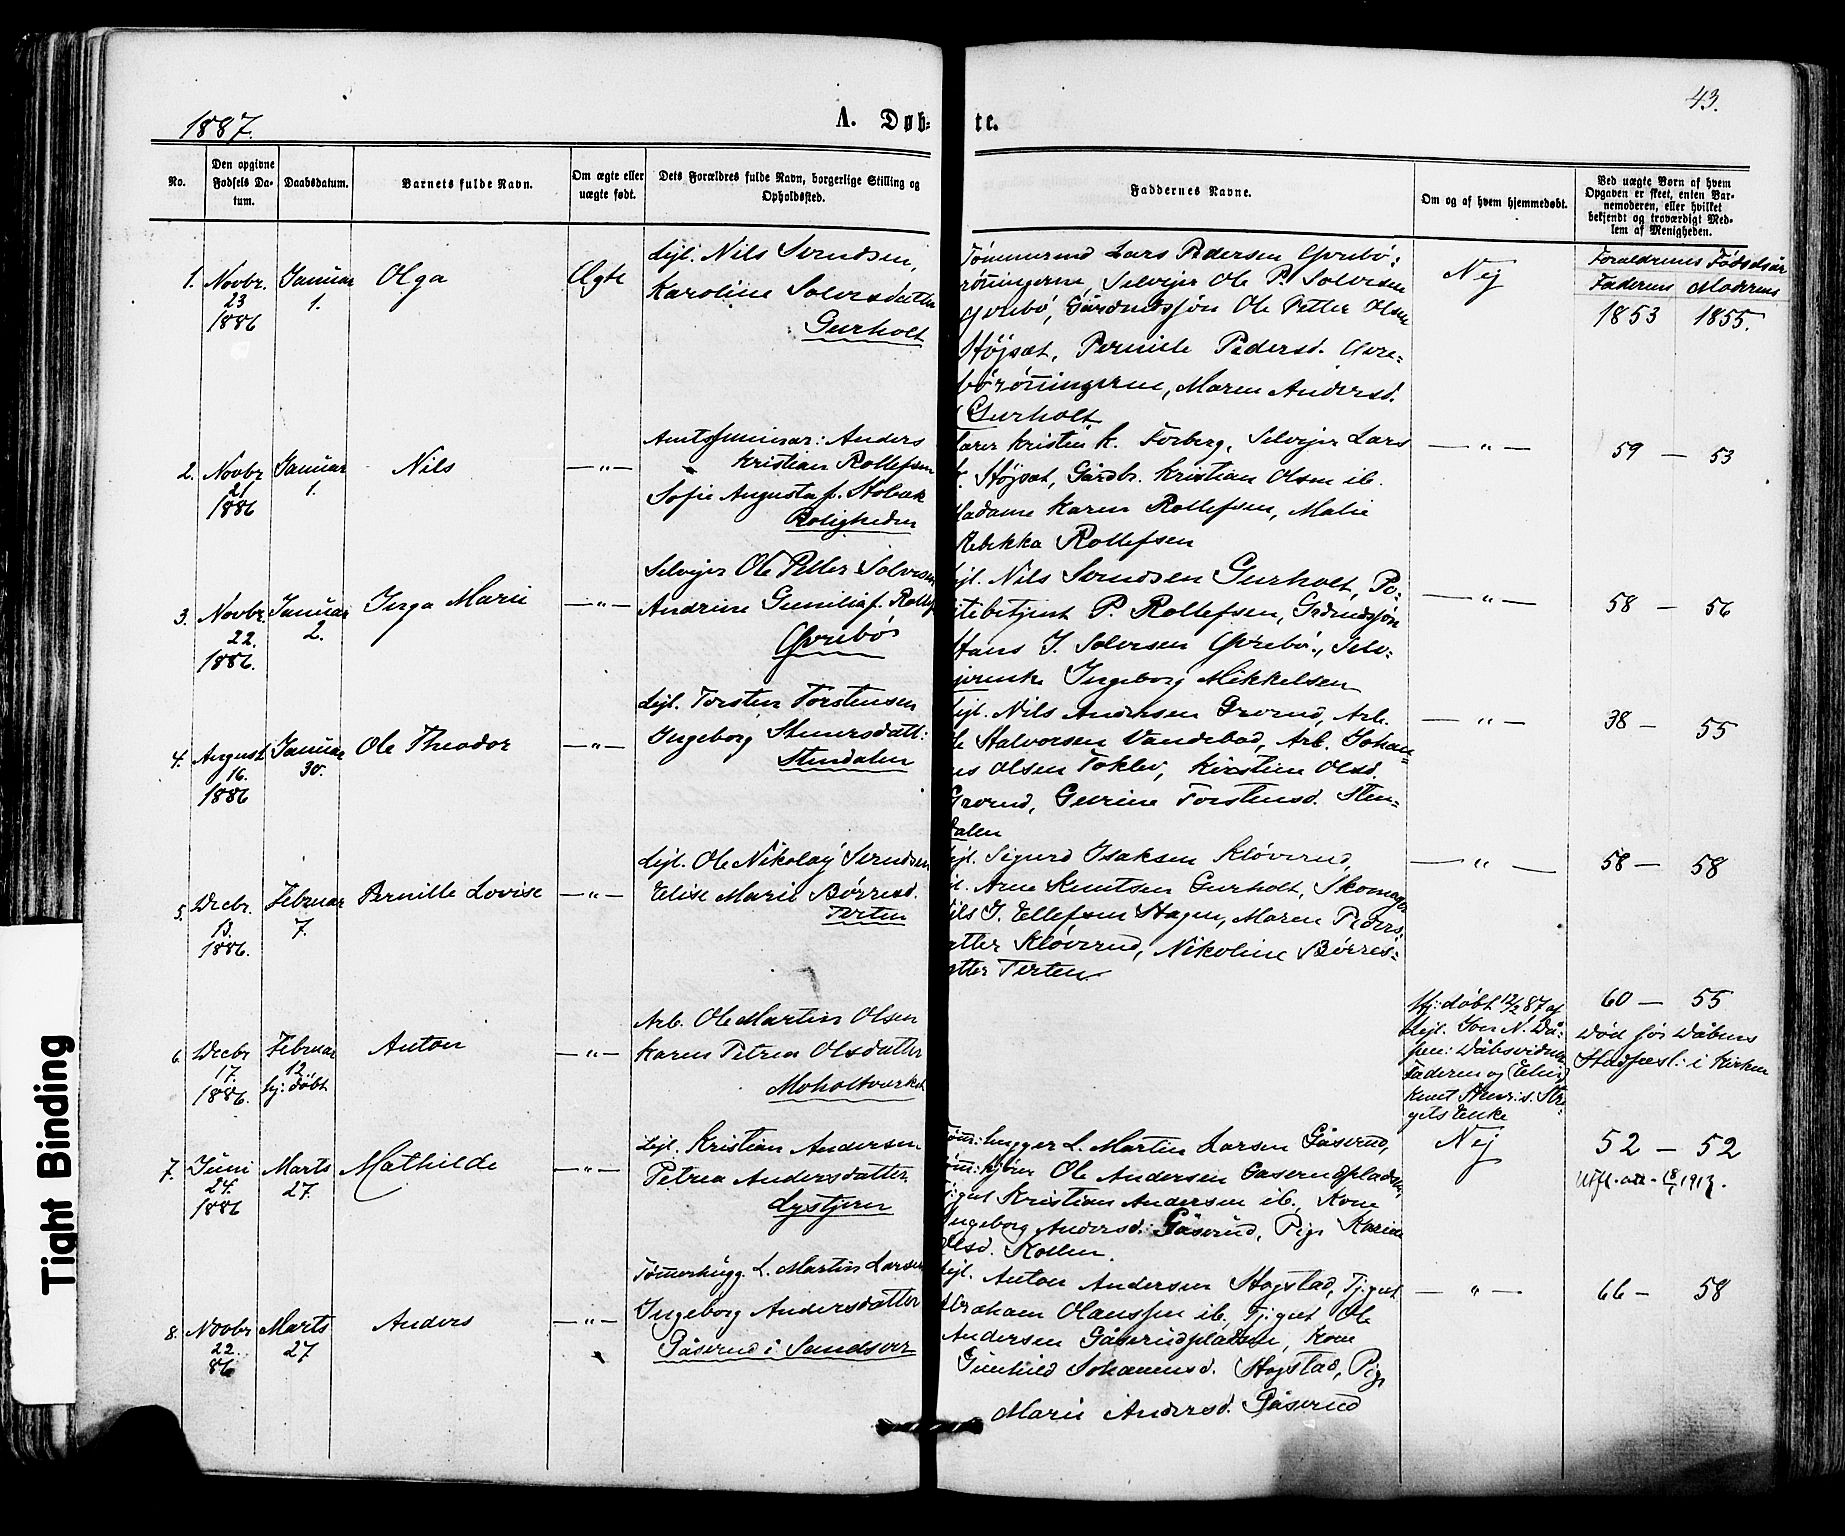 43.
1887.
A. Døb- te.
No.
Den opgivne Fødsels Datum.
Daabsdatum.
Barnets fulde Navn.
Om ægte eller uægte født.
Dets Forældres fulde Navn, borgerlige Stilling og Opholdssted.
Faddernes Navne.
Om og af hvem hjemmedøbt.
Ved uægte Børn af hvem Opgaven er skeet, enten Barnemoderen, eller hvilket bekjendt og troværdigt Medlem af Menigheden.
Forældrenes Fødselsår
Faderens Moderens
1. Novbr. 23 1886
Januar 1.
Olga
Ægte
Lejl. Nils Svendsen,
Karoline Solvesdatter
Gurholt
Tømmermd Lars Pedersen Gvrebø-
rønningerne, Selvejer Ole P. Solvesen
Gvrebø, Gårdmdssøn Ole Petter Olsen
Højsæt, Pernille Pedersd. Gvre-
børønningerne, Maren Andersd.
Gurholt
Nej
1853 1855.
2. Novbr 21 1886
Januar 1.
Nils
—"—
Amtsseminar: Anders
Kristian Rollefsen
Sofie Augusta f. Stobæk
Roligheden
Lærer Kristen K. Forberg, Selvejer Lars
Højsæt, Gårdbr. Kristian Olsen ib.
Madame Karen Rollefsen, Malie
Rebekka Rollefsen
—"—
59 — 53
3. Novbr. 22. 1886.
Januar 2.
Inga Marie
—"—
Selvejer Ole Petter Solvesen
Andrine Gunilia f. Rollefs
Gvrebø
Lejl. Nils Svendsen Gurholt, Po-
litibetjent P. Rollefsen, Grdmdssøn
Hans J. Solvesen Gvrebø, Selv-
ejerenke Ingeborg Mikkelsen
—"—
58 — 56
4. August 16. 1886
Januar 30.
Ole Theodor
—"—
Lejl. Torsten Torstensen
Ingeborg Steners datt:
Stendalen
Lejl. Nils Andersen Grorud, Arb.
Ole Halvorsen Vandebod, Arb. Johan-
nes Olsen Toklev, Kirstine Olsd.
Grorud, Gurine Torstensd. Sten-
dalen
—"—
38 — 55
5. Decbr. 13. 1886.
Februar 7.
Pernille Lovise
—"—
Lejl. Ole Nikolaj Svendsen
Elise Marie Børresd.
Terten
Lejl. Sigurd Isaksen Kløverud,
Lejl. Arne Knutsen Gurholt, Skomager
Nils J. Ellefsen Hagen, Maren Peders-
datter Kløverud, Nikoline Børres-
datter Terten
—"—
58 — 58
6. Decbr 17. 1886.
Februar 12. hj: døbt
Anton
—"—
Arb. Ole Martin Olsen
Karen Petrea Olsdatter
Moholtverket
Hj: døbt 12/2 87 af
Lejl.
Dåbsvidner
Faderen og
Enke
60 — 55
Død før Dåbens
Stadfæst: i Kirken
7. Juni 24. 1886
Marts 27.
Mathilde
—"—
Lejl. Kristian Andersen
Petrea Andersdatter
Lystjern
Tøm: hugger L. Martin Larsen Gåserud,
Tøm: kjører Ole Andersen Gaserudpladsen,
Tj: gut Kristian Andersen ib., Kone
Ingeborg Andersd. Gåserud, Pige Karine
Olsd. Kollen.
Nej
52 — 52
8. Novbr 22. 86
Marts 27
Anders
—"—
Tømmerhugg. L. Martin Larsen
Ingeborg Andersdatter
Gåserud i Sandsver
Lejl. Anton Andersen Hogstad, Tj: gut
Abraham Olanssen ib., Tj: gut Ole
Andersen Gåserudpladsen, Kone
Gunhild Johannesd. Hogstad, Pige
Marie Andersd. Gåserud
—"—
66 — 58
Tight Binding